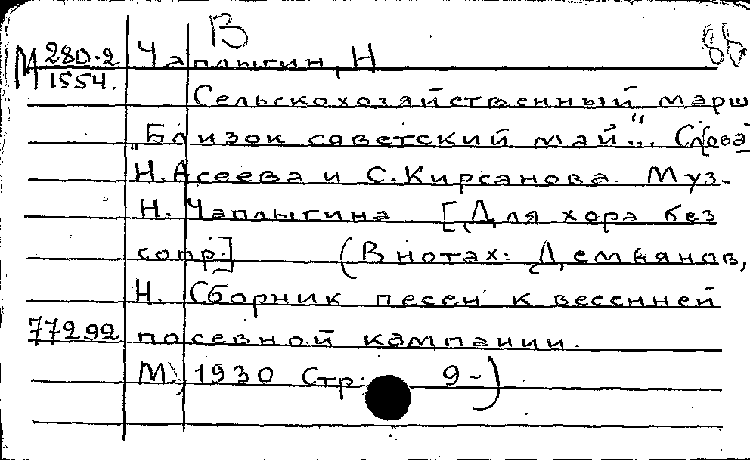 В 88
М 280-2 Чаплыгин, Н
1554.
Сельскохозяйственный марш
„Близок советский май“. Слова
Н. Асеева и С. Кирсанова. Муз.
Н. Чаплыгина [Для хора без
сопр.] (В нотах: Демьянов,
Н. Сборник песен к весенней
77292 посевной кампании.
М, 1930 Стр. 9-)